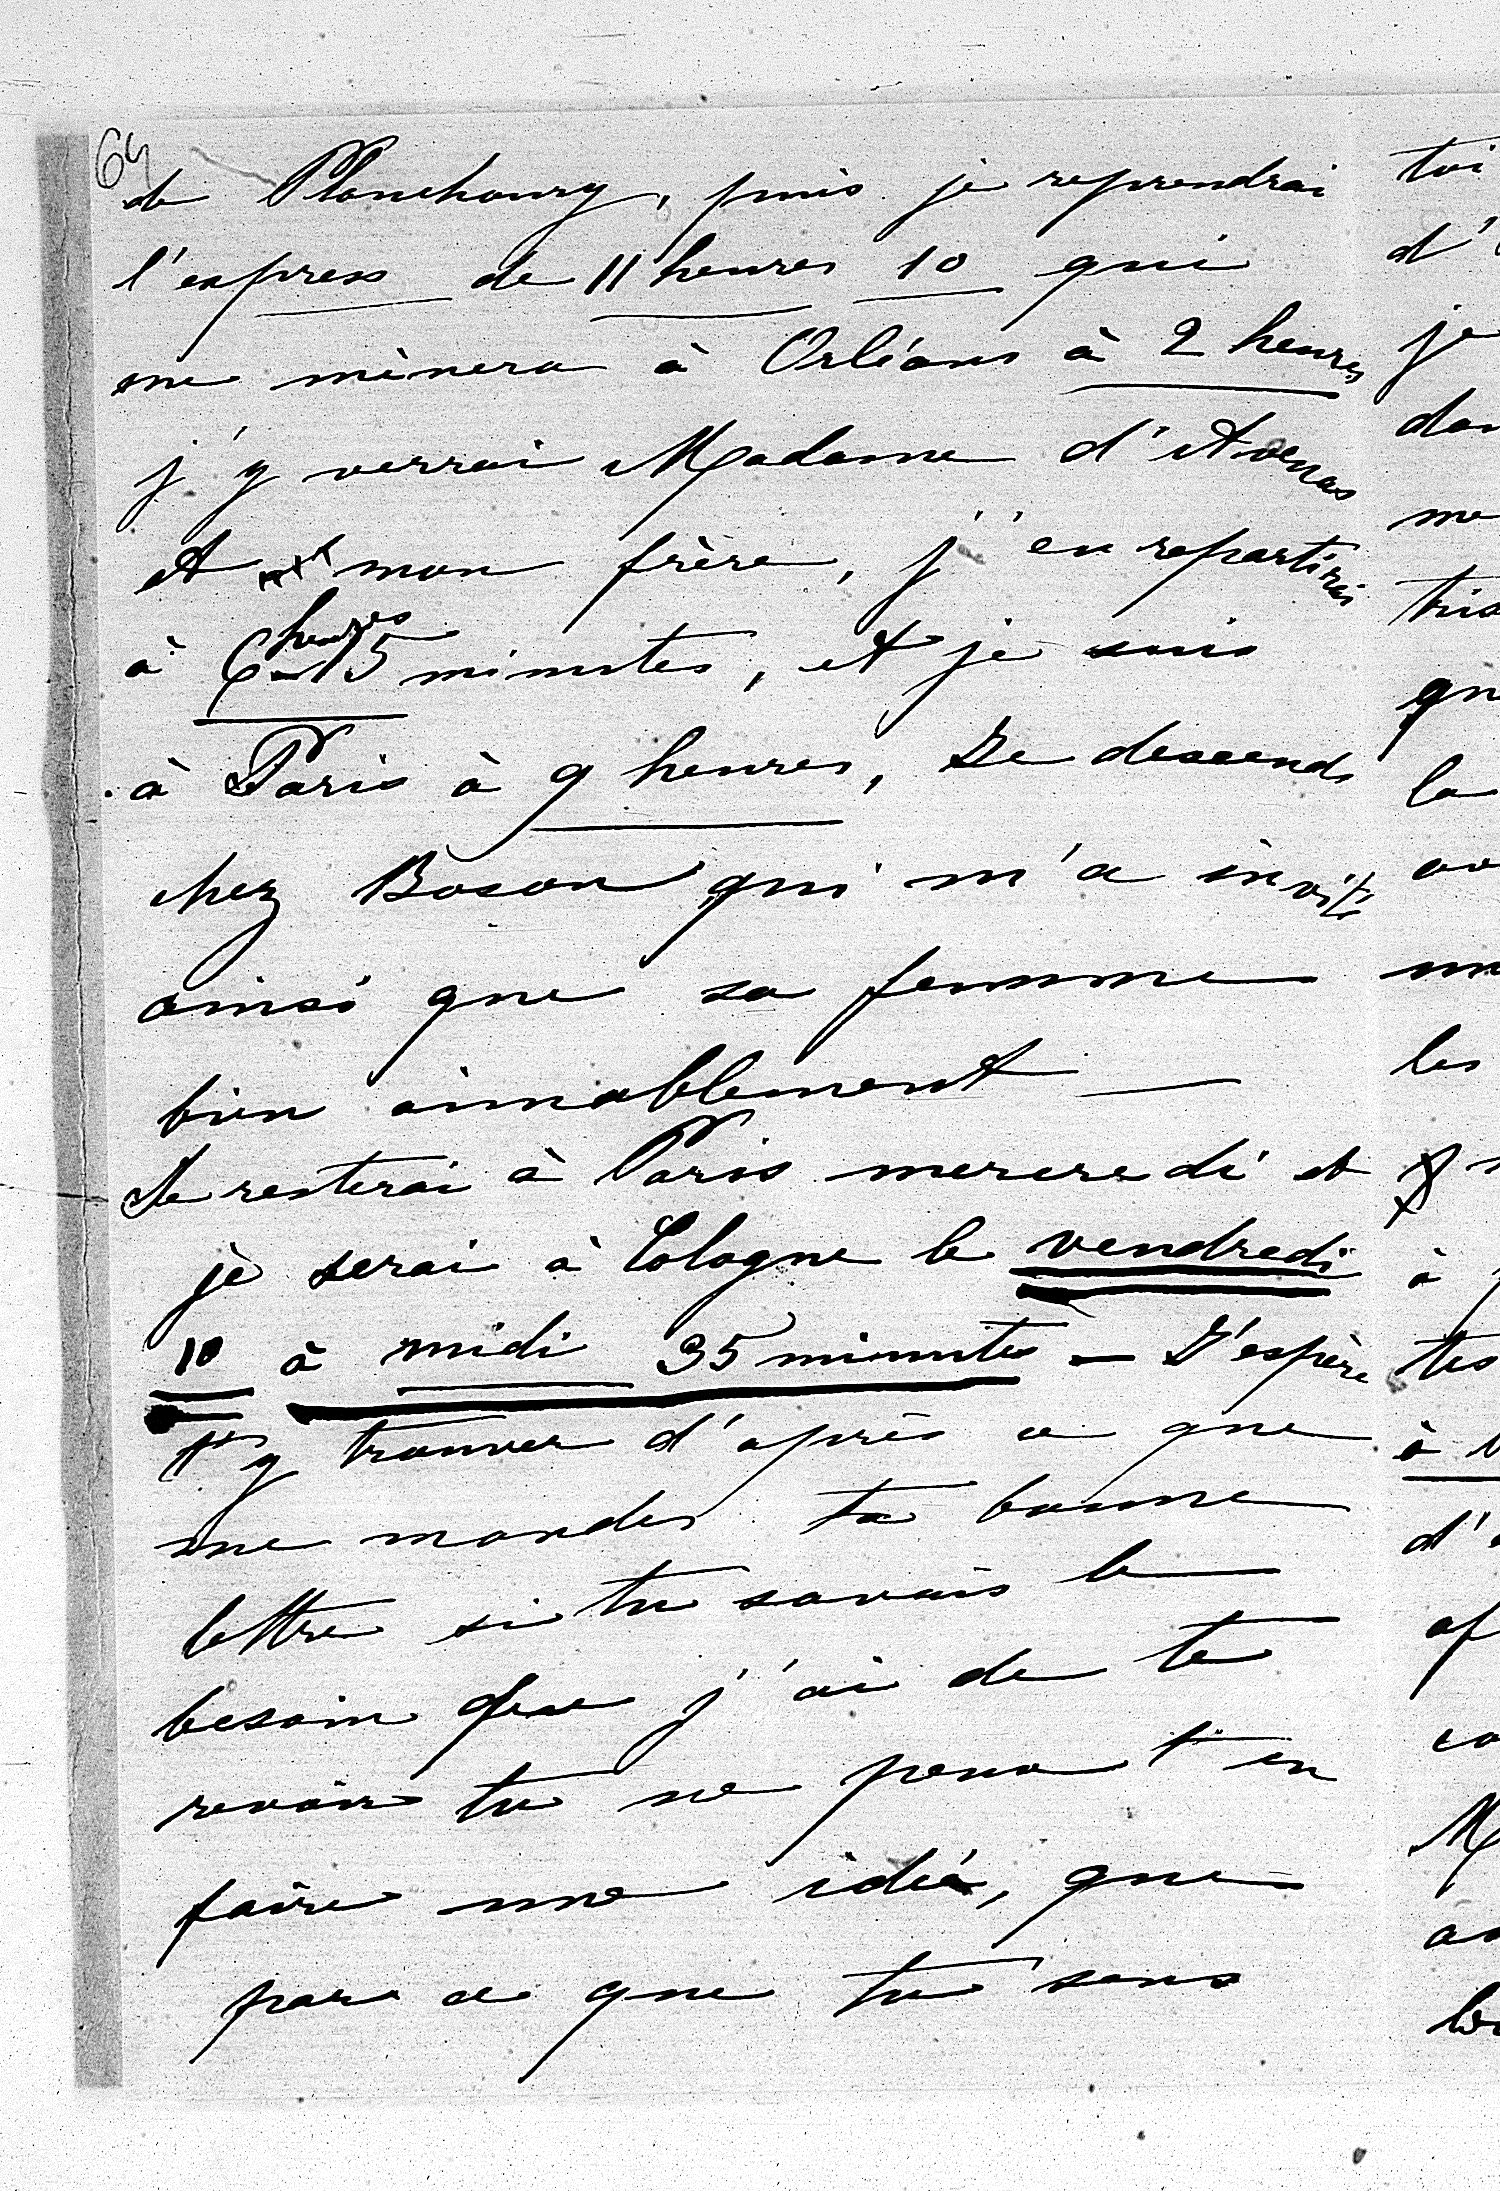 64
de Planchoury, puis je reprendrai
l'express de 11 heures 10 qui
me mènera à Orléans à 2 heures
j'y verrai Madame d'Avenas
et mon frère, j'en repartirai
à 6 heures 15 minutes, et je suis
à Paris à 9 heures, Je descends
chez Boson qui m'a invité
ainsi que sa femme
bien aimablement —
Je resterai à Paris mercredi et
je serai à Cologne le vendredi
10 à midi 35 minutes — J'espère
t'y trouver d'après ce que
me mandes ta bonne
lettre si tu savais le
besoin que j'ai de te
revoir tu ne peux t'en
faire une idée, que
par ce que tu sens
toi
d'
je
me
la
les
à
à
d'